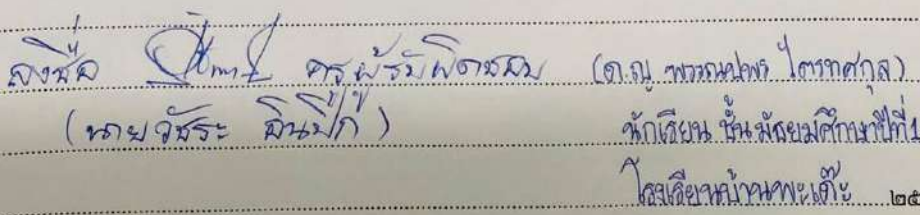 ลงชื่อ ครูผู้รับผิดชอบ (ด.ญ. พรรณปพร ไตรทศกุล)
(นายวัชระ อินปีก๋) นักเรียน ชั้นมัธยมศึกษาปีที่ 1
โรงเรียนบ้านพะเด๊ะ ๒๕